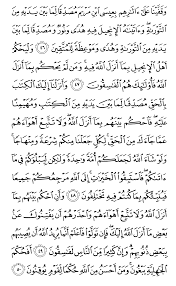 وَقَفَّيْنَا عَلَىٰٓ ءَاثَٰرِهِم بِعِيسَى ٱبْنِ مَرْيَمَ مُصَدِّقًا لِّمَا بَيْنَ يَدَيْهِ مِنَ
ٱلتَّوْرَىٰةِ وَءَاتَيْنَٰهُ ٱلْإِنجِيلَ فِيهِ هُدًى وَنُورٌ وَمُصَدِّقًا لِّمَا بَيْنَ
يَدَيْهِ مِنَ ٱلتَّوْرَىٰةِ وَهُدًى وَمَوْعِظَةً لِّلْمُتَّقِينَ ٤٦ وَلْيَحْكُمْ
أَهْلُ ٱلْإِنجِيلِ بِمَآ أَنزَلَ ٱللَّهُ فِيهِ وَمَن لَّمْ يَحْكُم بِمَآ أَنزَلَ
ٱللَّهُ فَأُو۟لَٰٓئِكَ هُمُ ٱلْفَٰسِقُونَ ٤٧ وَأَنزَلْنَآ إِلَيْكَ ٱلْكِتَٰبَ
بِٱلْحَقِّ مُصَدِّقًا لِّمَا بَيْنَ يَدَيْهِ مِنَ ٱلْكِتَٰبِ وَمُهَيْمِنًا
عَلَيْهِ فَٱحْكُم بَيْنَهُم بِمَآ أَنزَلَ ٱللَّهُ وَلَا تَتَّبِعْ أَهْوَآءَهُمْ
عَمَّا جَآءَكَ مِنَ ٱلْحَقِّ لِكُلٍّ جَعَلْنَا مِنكُمْ شِرْعَةً وَمِنْهَاجًا
وَلَوْ شَآءَ ٱللَّهُ لَجَعَلَكُمْ أُمَّةً وَٰحِدَةً وَلَٰكِن لِّيَبْلُوَكُمْ فِى مَآ
ءَاتَىٰكُمْ فَٱسْتَبِقُوا۟ ٱلْخَيْرَٰتِ إِلَى ٱللَّهِ مَرْجِعُكُمْ جَمِيعًا
فَيُنَبِّئُكُم بِمَا كُنتُمْ فِيهِ تَخْتَلِفُونَ ٤٨ وَأَنِ ٱحْكُم بَيْنَهُم بِمَآ
أَنزَلَ ٱللَّهُ وَلَا تَتَّبِعْ أَهْوَآءَهُمْ وَٱحْذَرْهُمْ أَن يَفْتِنُوكَ عَنۢ
بَعْضِ مَآ أَنزَلَ ٱللَّهُ إِلَيْكَ فَإِن تَوَلَّوْا۟ فَٱعْلَمْ أَنَّمَا يُرِيدُ ٱللَّهُ أَن يُصِيبَهُم
بِبَعْضِ ذُنُوبِهِمْ وَإِنَّ كَثِيرًا مِّنَ ٱلنَّاسِ لَفَٰسِقُونَ ٤٩ أَفَحُكْمَ
ٱلْجَٰهِلِيَّةِ يَبْغُونَ وَمَنْ أَحْسَنُ مِنَ ٱللَّهِ حُكْمًا لِّقَوْمٍ يُوقِنُونَ ٥٠